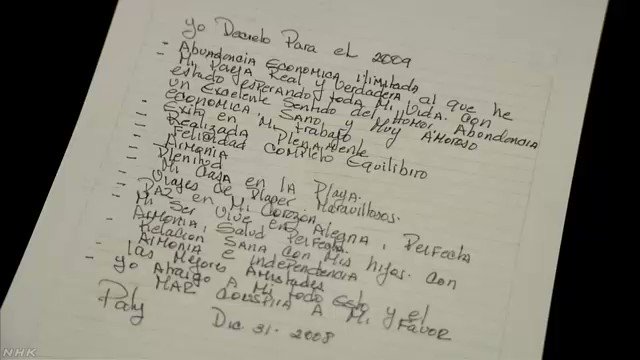 yo Decreto Para el 2009
- Abundencia Economica ilimitada
- Mi Pareja Real y Verdadera al que he
estado esperando toda Mi Vida. Con
un Excelente Sentido del Humor, Abondencia
economica, Sano, y Muy Amoroso
- Exito en Mi trabajo
- Realizada Plenamente
- Felicidad Completo Equilibiro
- Armonia
- Plenitud
- Mi Casa en la Playa.
- Viajes de Placer Maravillosos.
- Paz en Mi Corazon
- Mi Ser Vive en Alegria, Perfecta
Armonia, Salud Perfecta.
- Relacion Sana con Mis hijos. Con
Armonia e Independencia
- las Mejores Amistades
yo Atraigo A Mi todo esto y el
MAR Conspira A Mi Favor
Paty Dic 31. 2008
NHK